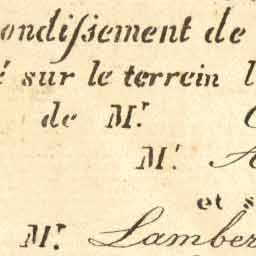 ondiſsement de
é sur le terrein l
de Mr.
Mr. A
et s
Mr. Lamber